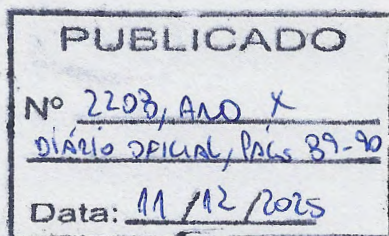 PUBLICADO
Nº 2203, ANO X
DIÁRIO OFICIAL, PÁGS 89-90
Data: 11/12/2025